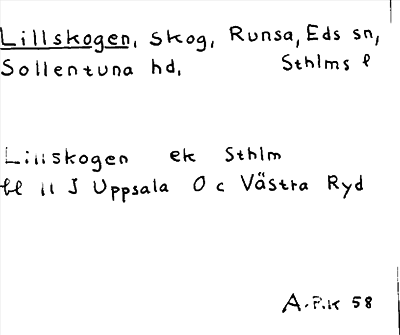 Lillskogen, skog, Runsa, Eds sn,
Sollentuna hd, Sthlms l
Lillskogen ek Sthlm
bl 11 J Uppsala O c Västra Ryd
A.P.K 58